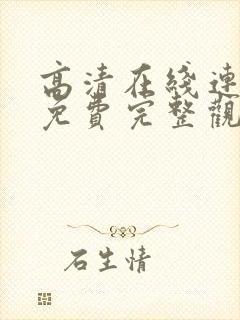 高清在线連
免費完整觀
石生情